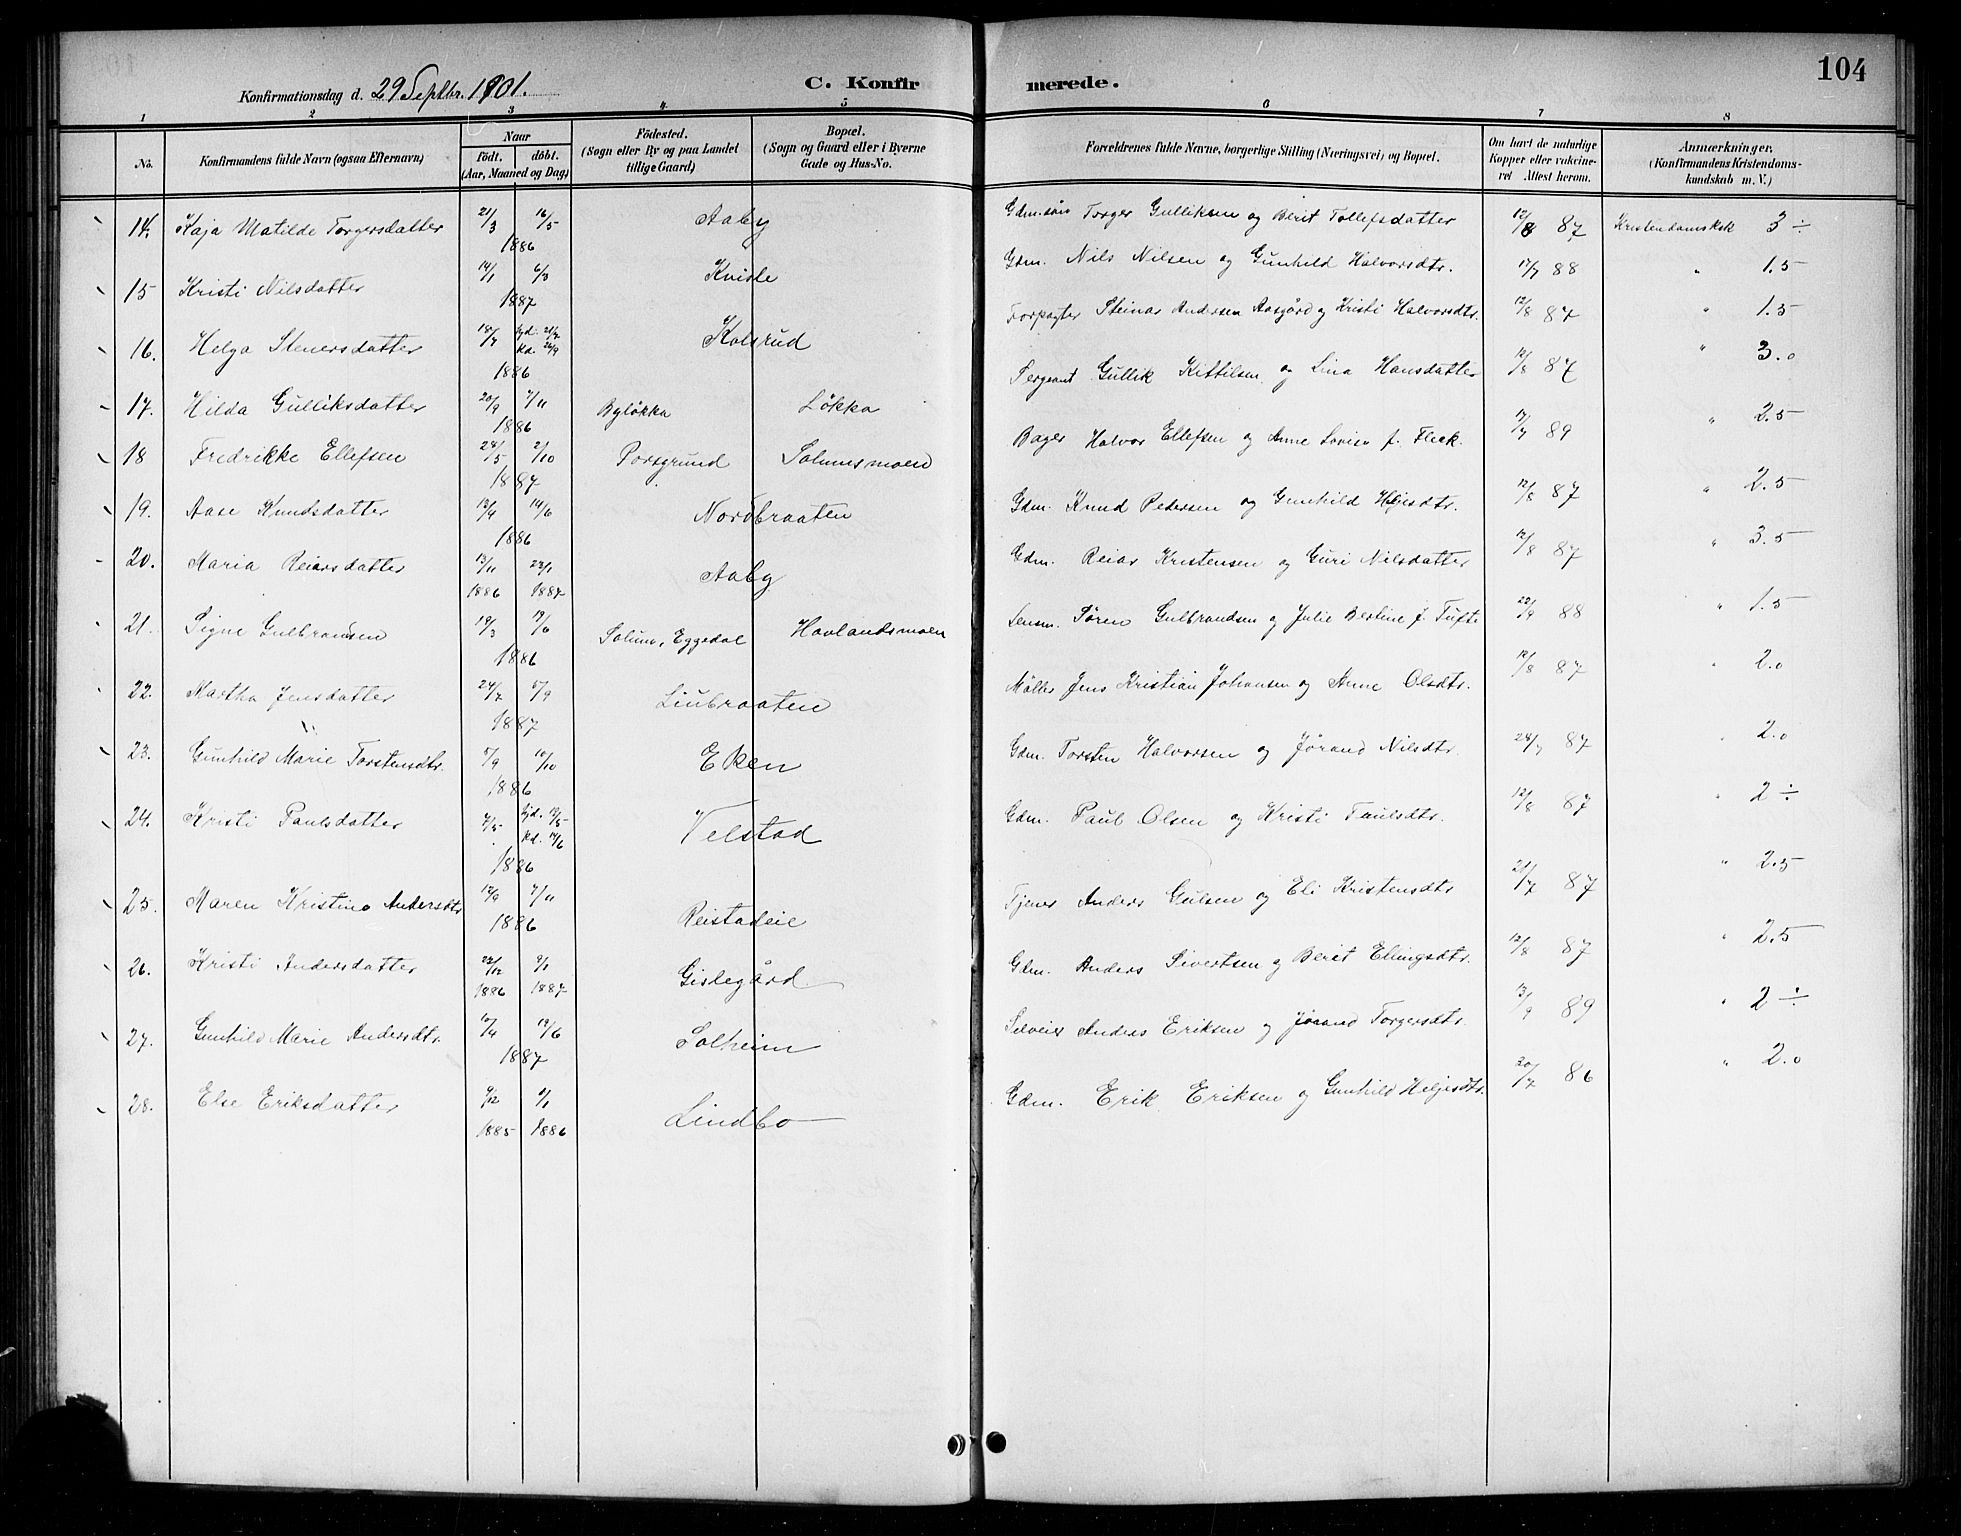 104
Konfirmationsdag d. 29 Septbr. 1901. C. Konfirmerede.
1 2 3 4 5 6 7 8
No. Konfirmandens fulde Navn (ogsaa Efternavn) Naar født. døbt. (Aar, Maaned og Dag) Födested. (Sogn eller By og paa Landet tillige Gaard) Bopæl. (Sogn og Gaard eller i Byerne Gade og Hus-No. Forældrenes fulde Navne, borgerlige Stilling (Næringsvei) og Bopæl. Om havt de naturlige Kopper eller vaccineret Attest herom. Anmærkninger. (Konfirmandens Kristendomskundskab m. V.)
14. Kaja Matilde Torgersdatter 21/3 16/5 1886 Aaby Gdm.søn Torger Gulliksen og Berit Tollefsdatter 12/8 87 Kristendomsksk 3 ÷
15 Kristi Nilsdatter 14/1 6/3 1887 Kvisle Gdm. Nils Nilsen og Gunhild Halvorsdtr. 17/7 88 " 1.5
16. Helga Stenersdatter 18/7 hjd. 21/7 kd. 26/9 1886 Kolsrud Forpagter Steinar Andersen Aasgård og Kristi Halvorsdtr. 12/8 87 " 1.5
17. Hilda Gulliksdatter 20/9 7/11 1886 Byløkka Løkka Sergeant Gullik Kittilsen og Lina Hansdatter 12/8 87 " 3.0
18 Fredrikke Ellefsen 24/5 2/10 1887 Porsgrund Solumsmoen Bager Halvor Ellefsen og Anne Lovise f. Fleck. 17/7 89 " 2.5
19. Aase Knudsdatter 13/4 14/6 1886 Nordbraaten Gdm. Knud Pedersen og Gunhild Heljesdtr. 12/8 87 " 2.5
20. Maria Reiarsdatter 13/11 1886 23/1 1887 Aaby Gdm. Reiar Kristensen og Guri Nilsdatter 12/8 87 " 3.5
21. Signe Gulbrandsen 19/3 19/6 1886 Solum, Eggedal Hovlandsmoen Lensm. Søren Gulbrandsen og Julie Bertine f. Tufte 22/9 88 " 1.5
22. Martha Jensdatter 24/7 5/9 1887 Liubraaten Møller Jens Kristian Johansen og Anne Olsdtr. 12/8 87 " 2.0
23. Gunhild Marie Torstensdtr. 5/9 10/10 1886 Eken Gdm. Torsten Halvorsen og Jørand Nilsdtr. 24/7 87 " 2.0
24. Kristi Paulsdatter 7/5 hjd. 13/5 kd. 14/6 1886 Velstad Gdm. Paul Olsen og Kristi Paulsdtr. 12/8 87 " 2 ÷
25. Maren Kristine Andersdtr 12/9 7/11 1886 Reistadeie Tjener Anders Gulsen og Eli Kristensdtr 21/7 87 " 2.5
26. Kristi Andersdatter 22/12 1886 9/1 1887 Gislegård Gdm. Anders Sivertsen og Berit Ellingsdtr. 12/8 87 " 2.5
27. Gunhild Marie Andersdtr. 10/4 19/6 1887 Solheim Selveier Anders Eriksen og Jørand Torgersdtr. 13/9 89 " 2 ÷
28. Else Eriksdatter 9/12 1885 6/1 1886 Lindbo Gdm. Erik Eriksen og Gunhild Heljesdtr. 20/7 86 " 2.0